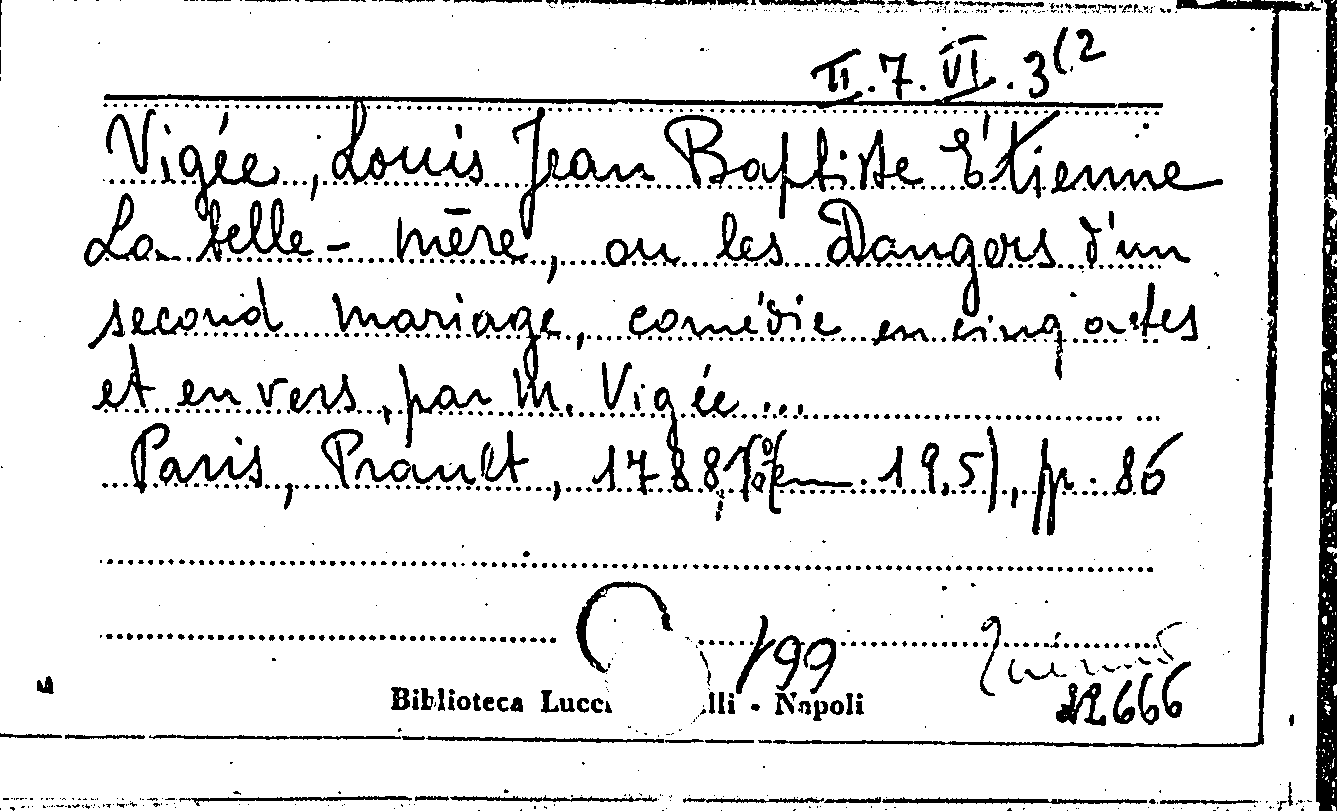 II.7.VI.3(2
Vigée, Louis Jean Baptiste Étienne
La belle-mère, ou les Dangers d'un
second mariage, comédie en cinq actes
et en vers, par M. Vigée...
Paris, Prault, 1788, 19,5), pp. 86
199
Biblioteca Lucc lli - Napoli
22666